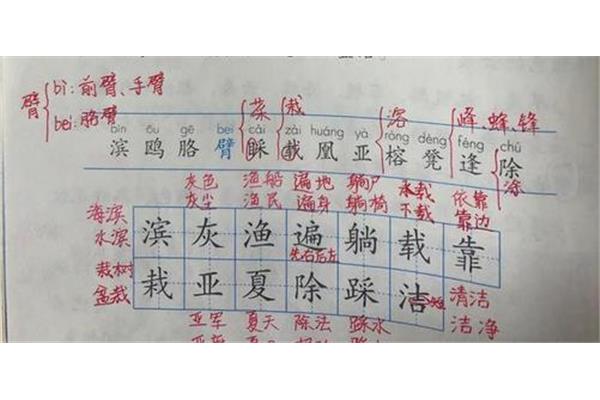 臂 bì: 前臂、手臂
bei: 胳臂
菜 栽 溶 峰、蜂、锋
bīn ōu gē bei cǎi zài huáng yà róng dèng féng chú
滨 鸥 胳 臂 睬 载 凰 亚 榕 凳 逢 除
涂
灰色 渔船 遍地 躺尸 承载 依靠
灰尘 渔民 遍身 躺椅 下载 靠边
海滨
水滨
滨 灰 渔 遍 躺 载 靠
先右后左
栽树
盆栽
栽 亚 夏 除 踩 洁
清洁
洁净
亚军 夏天 除法 踩水